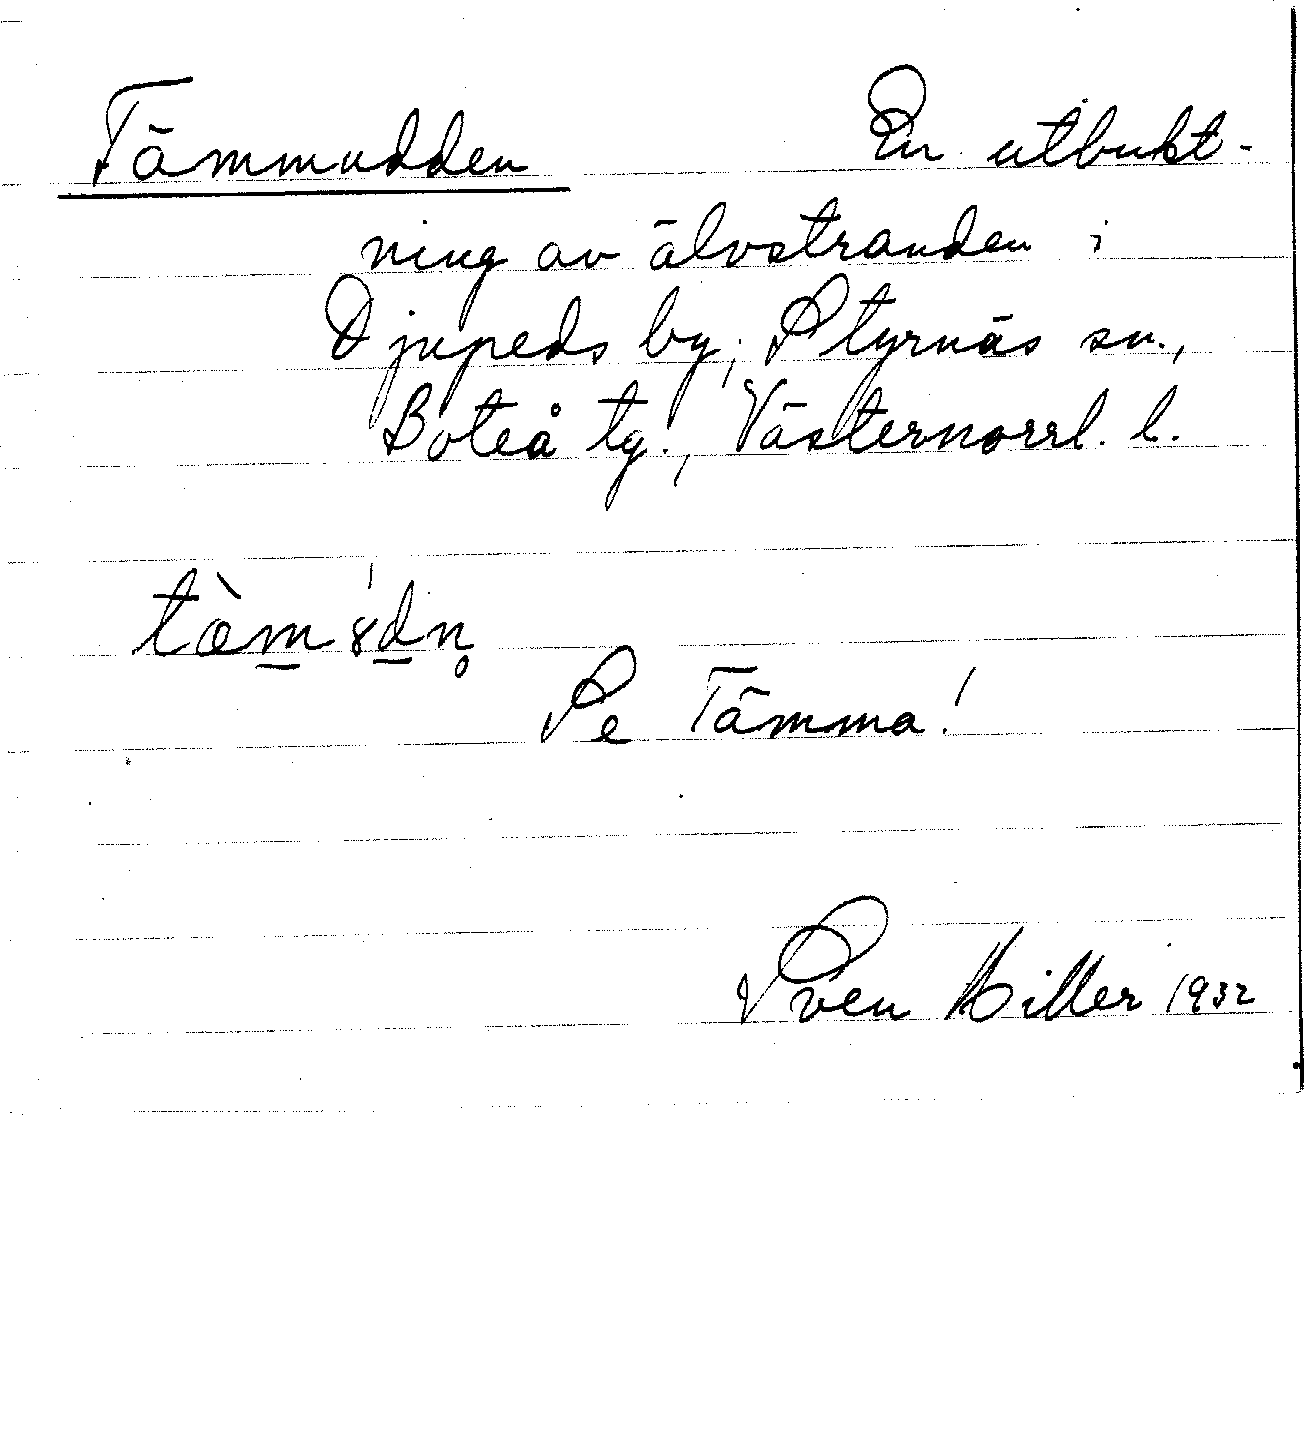 Tämmudden En utbukt-
ning av älvstranden i
Djupeds by, Styrnäs sn.,
Boteå tg., Västernorrl. l.
tæ̀m̲ 8́d̲n̥
Se Tämma!
Sven Hiller 1932